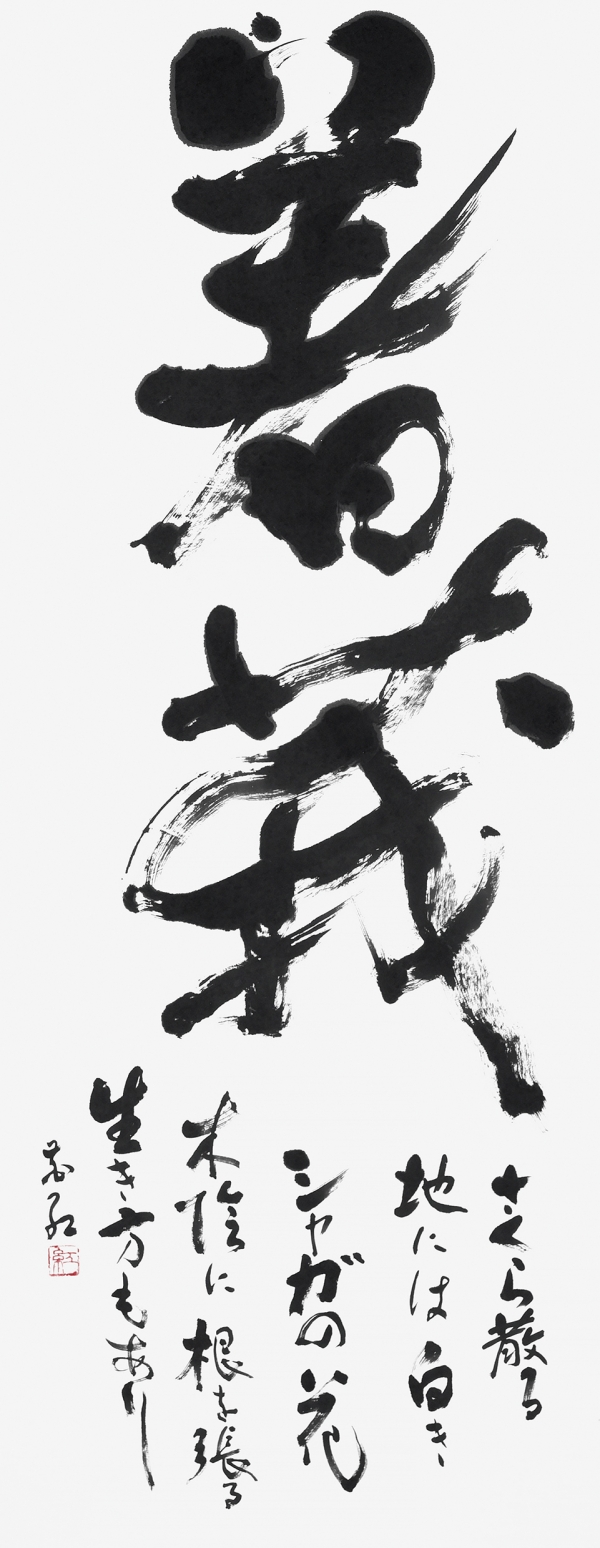 著莪
さくら散る
地には白き
シャガの花
木陰に根を張る
生き方もあり